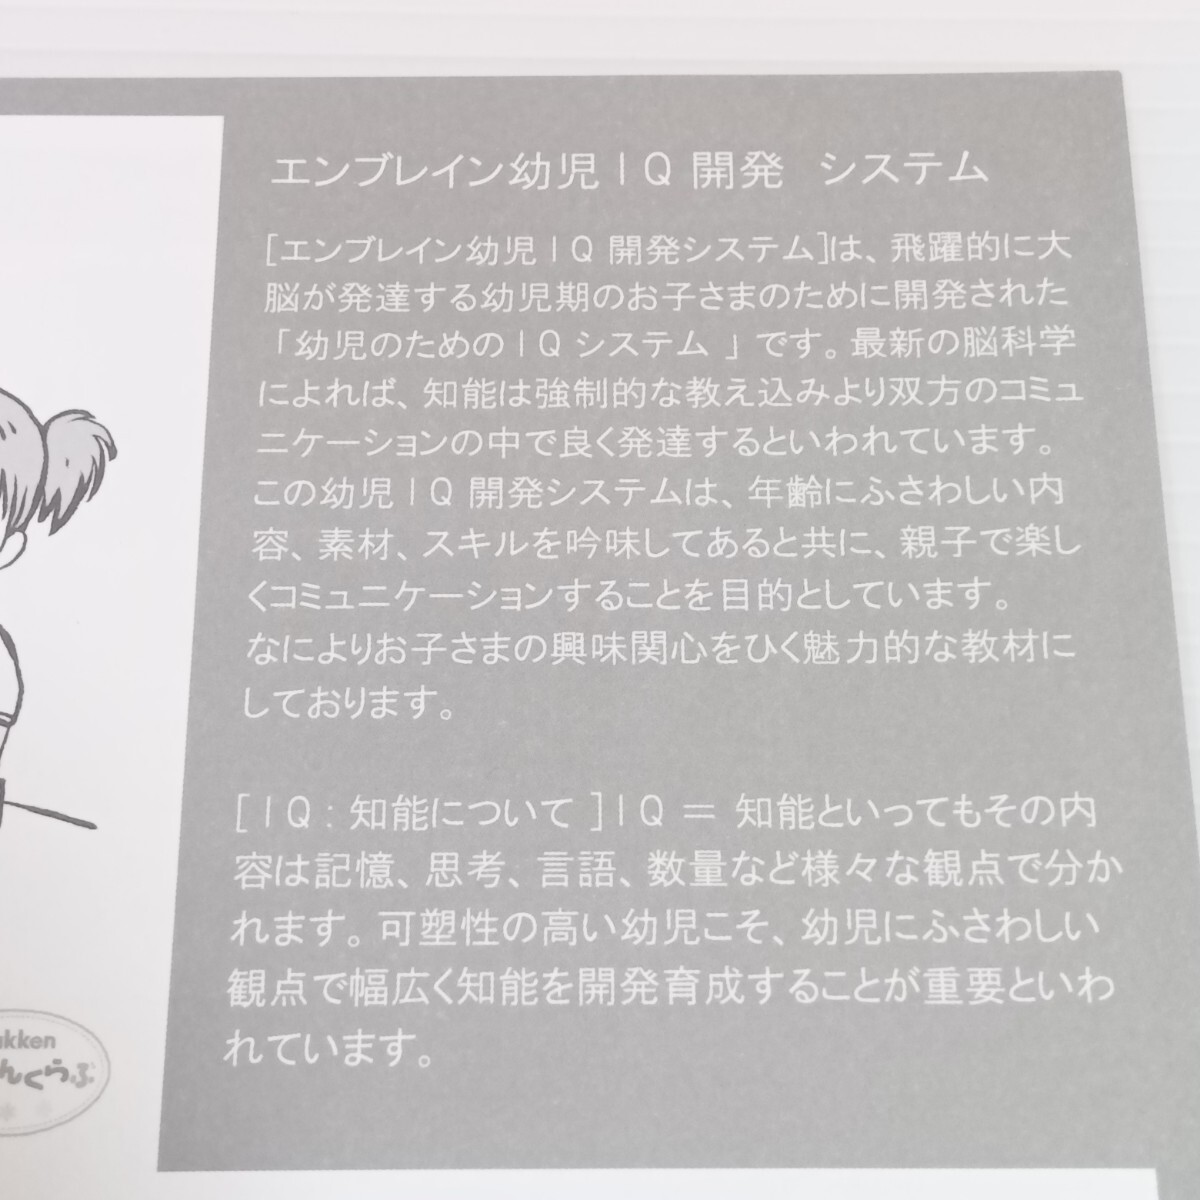 エンブレイン幼児IQ 開発　システム
[エンブレイン幼児IQ 開発システム]は、飛躍的に大
脳が発達する幼児期のお子さまのために開発された
「幼児のためのIQ システム 」です。最新の脳科学
によれば、知能は強制的な教え込みより双方のコミュ
ニケーションの中で良く発達するといわれています。
この幼児IQ 開発システムは、年齢にふさわしい内
容、素材、スキルを吟味してあると共に、親子で楽し
くコミュニケーションすることを目的としています。
なによりお子さまの興味関心をひく魅力的な教材に
しております。
[IQ：知能について ]IQ ＝ 知能といってもその内
容は記憶、思考、言語、数量など様々な観点で分か
れます。可塑性の高い幼児こそ、幼児にふさわしい
観点で幅広く知能を開発育成することが重要といわ
れています。
ukken
んくらぶ